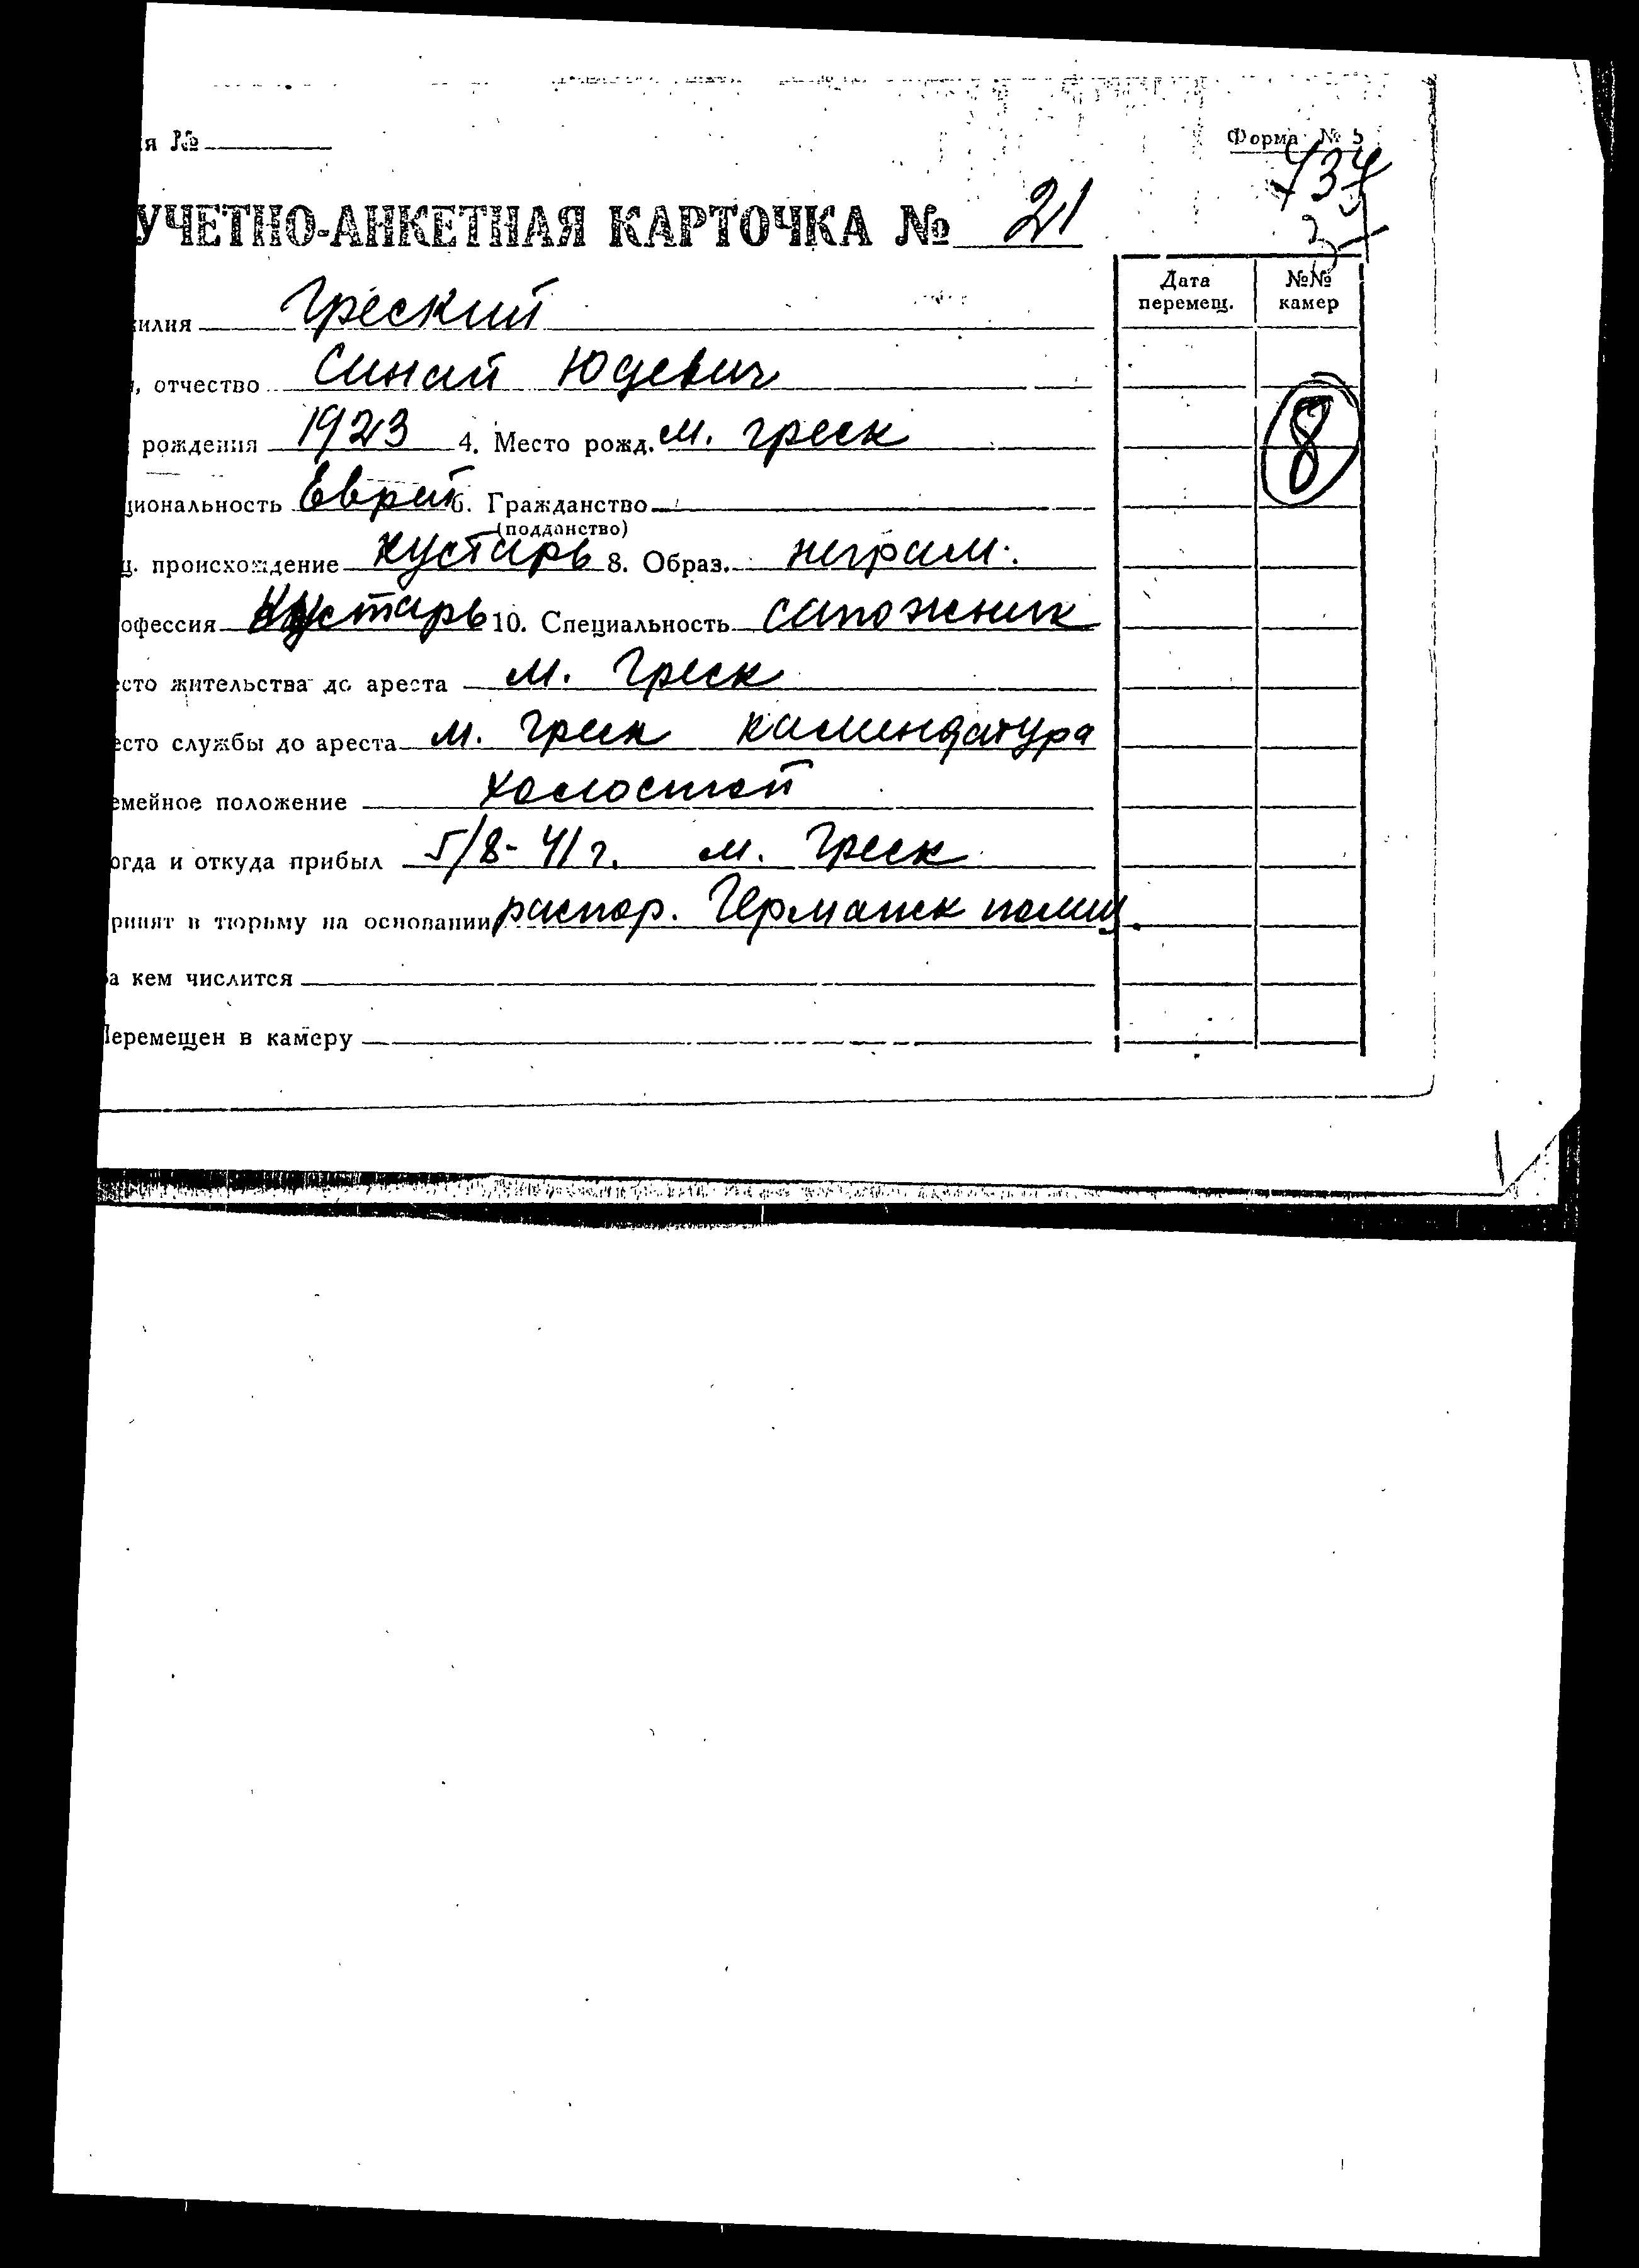 я №
Форма № 5
УЧЕТНО-АНКЕТНАЯ КАРТОЧКА № 21
Дата перемещ. №№ камер
илия Греский
, отчество Синай Юдевич
рождения 1923 4. Место рожд. м. греск
8
циональность Еврей 6. Гражданство
(подданство)
ц. происхождение кустарь 8. Образ. неграм.
офессия Кустарь 10. Специальность сапожник
есто жительства до ареста м. Греск
есто службы до ареста м. Греск камендатура
емейное положение холостой
огда и откуда прибыл 5/8-41 г. м. Греск
ринят в тюрьму на основании распор. Германск полиц.
а кем числится
Перемещен в камеру